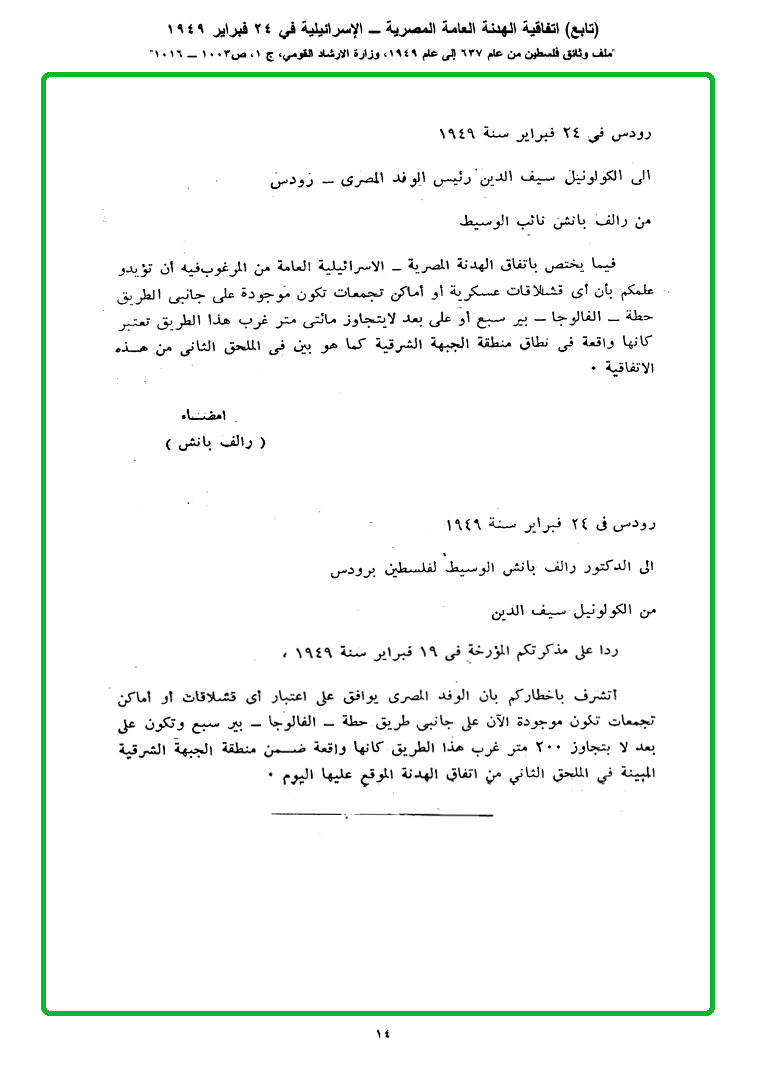 (تابع) اتفاقية الهدنة العامة المصرية ــ الإسرائيلية في ٢٤ فبراير ١٩٤٩
"ملف وثائق فلسطين من عام ٦٣٧ إلى عام ١٩٤٩، وزارة الارشاد القومي، ج ١، ص ١٠٠٣ ــ ١٠١٦"
رودس في ٢٤ فبراير سنة ١٩٤٩
الى الكولونيل سيف الدين رئيس الوفد المصرى ــ رودس
من رالف بانش نائب الوسيط
فيما يختص باتفاق الهدنة المصرية ــ الاسرائيلية العامة من المرغوب فيه أن تؤيدو
علمكم بأن أى قشلاقات عسكرية أو أماكن تجمعات تكون موجودة على جانبى الطريق
حطة ــ الفالوجا ــ بير سبع أو على بعد لايتجاوز مائتى متر غرب هذا الطريق تعتبر
كانها واقعة فى نطاق منطقة الجبهة الشرقية كما هو بين فى الملحق الثانى من هــذه
الاتفاقية ٠
امضــاء
( رالف بانش )
رودس فى ٢٤ فبراير سنة ١٩٤٩
الى الدكتور رالف بانش الوسيط لفلسطين برودس
من الكولونيل سيف الدين
ردا على مذكرتكم المؤرخة فى ١٩ فبراير سنة ١٩٤٩ ،
أتشرف باخطاركم بان الوفد المصرى يوافق على اعتبار أى قشلاقات أو أماكن
تجمعات تكون موجودة الآن على جانبى طريق حطة ــ الفالوجا ــ بير سبع وتكون على
بعد لا يتجاوز ٢٠٠ متر غرب هذا الطريق كانها واقعة ضــمن منطقة الجبهة الشرقية
المبينة في الملحق الثاني من اتفاق الهدنة الموقع عليها اليوم ٠
١٤